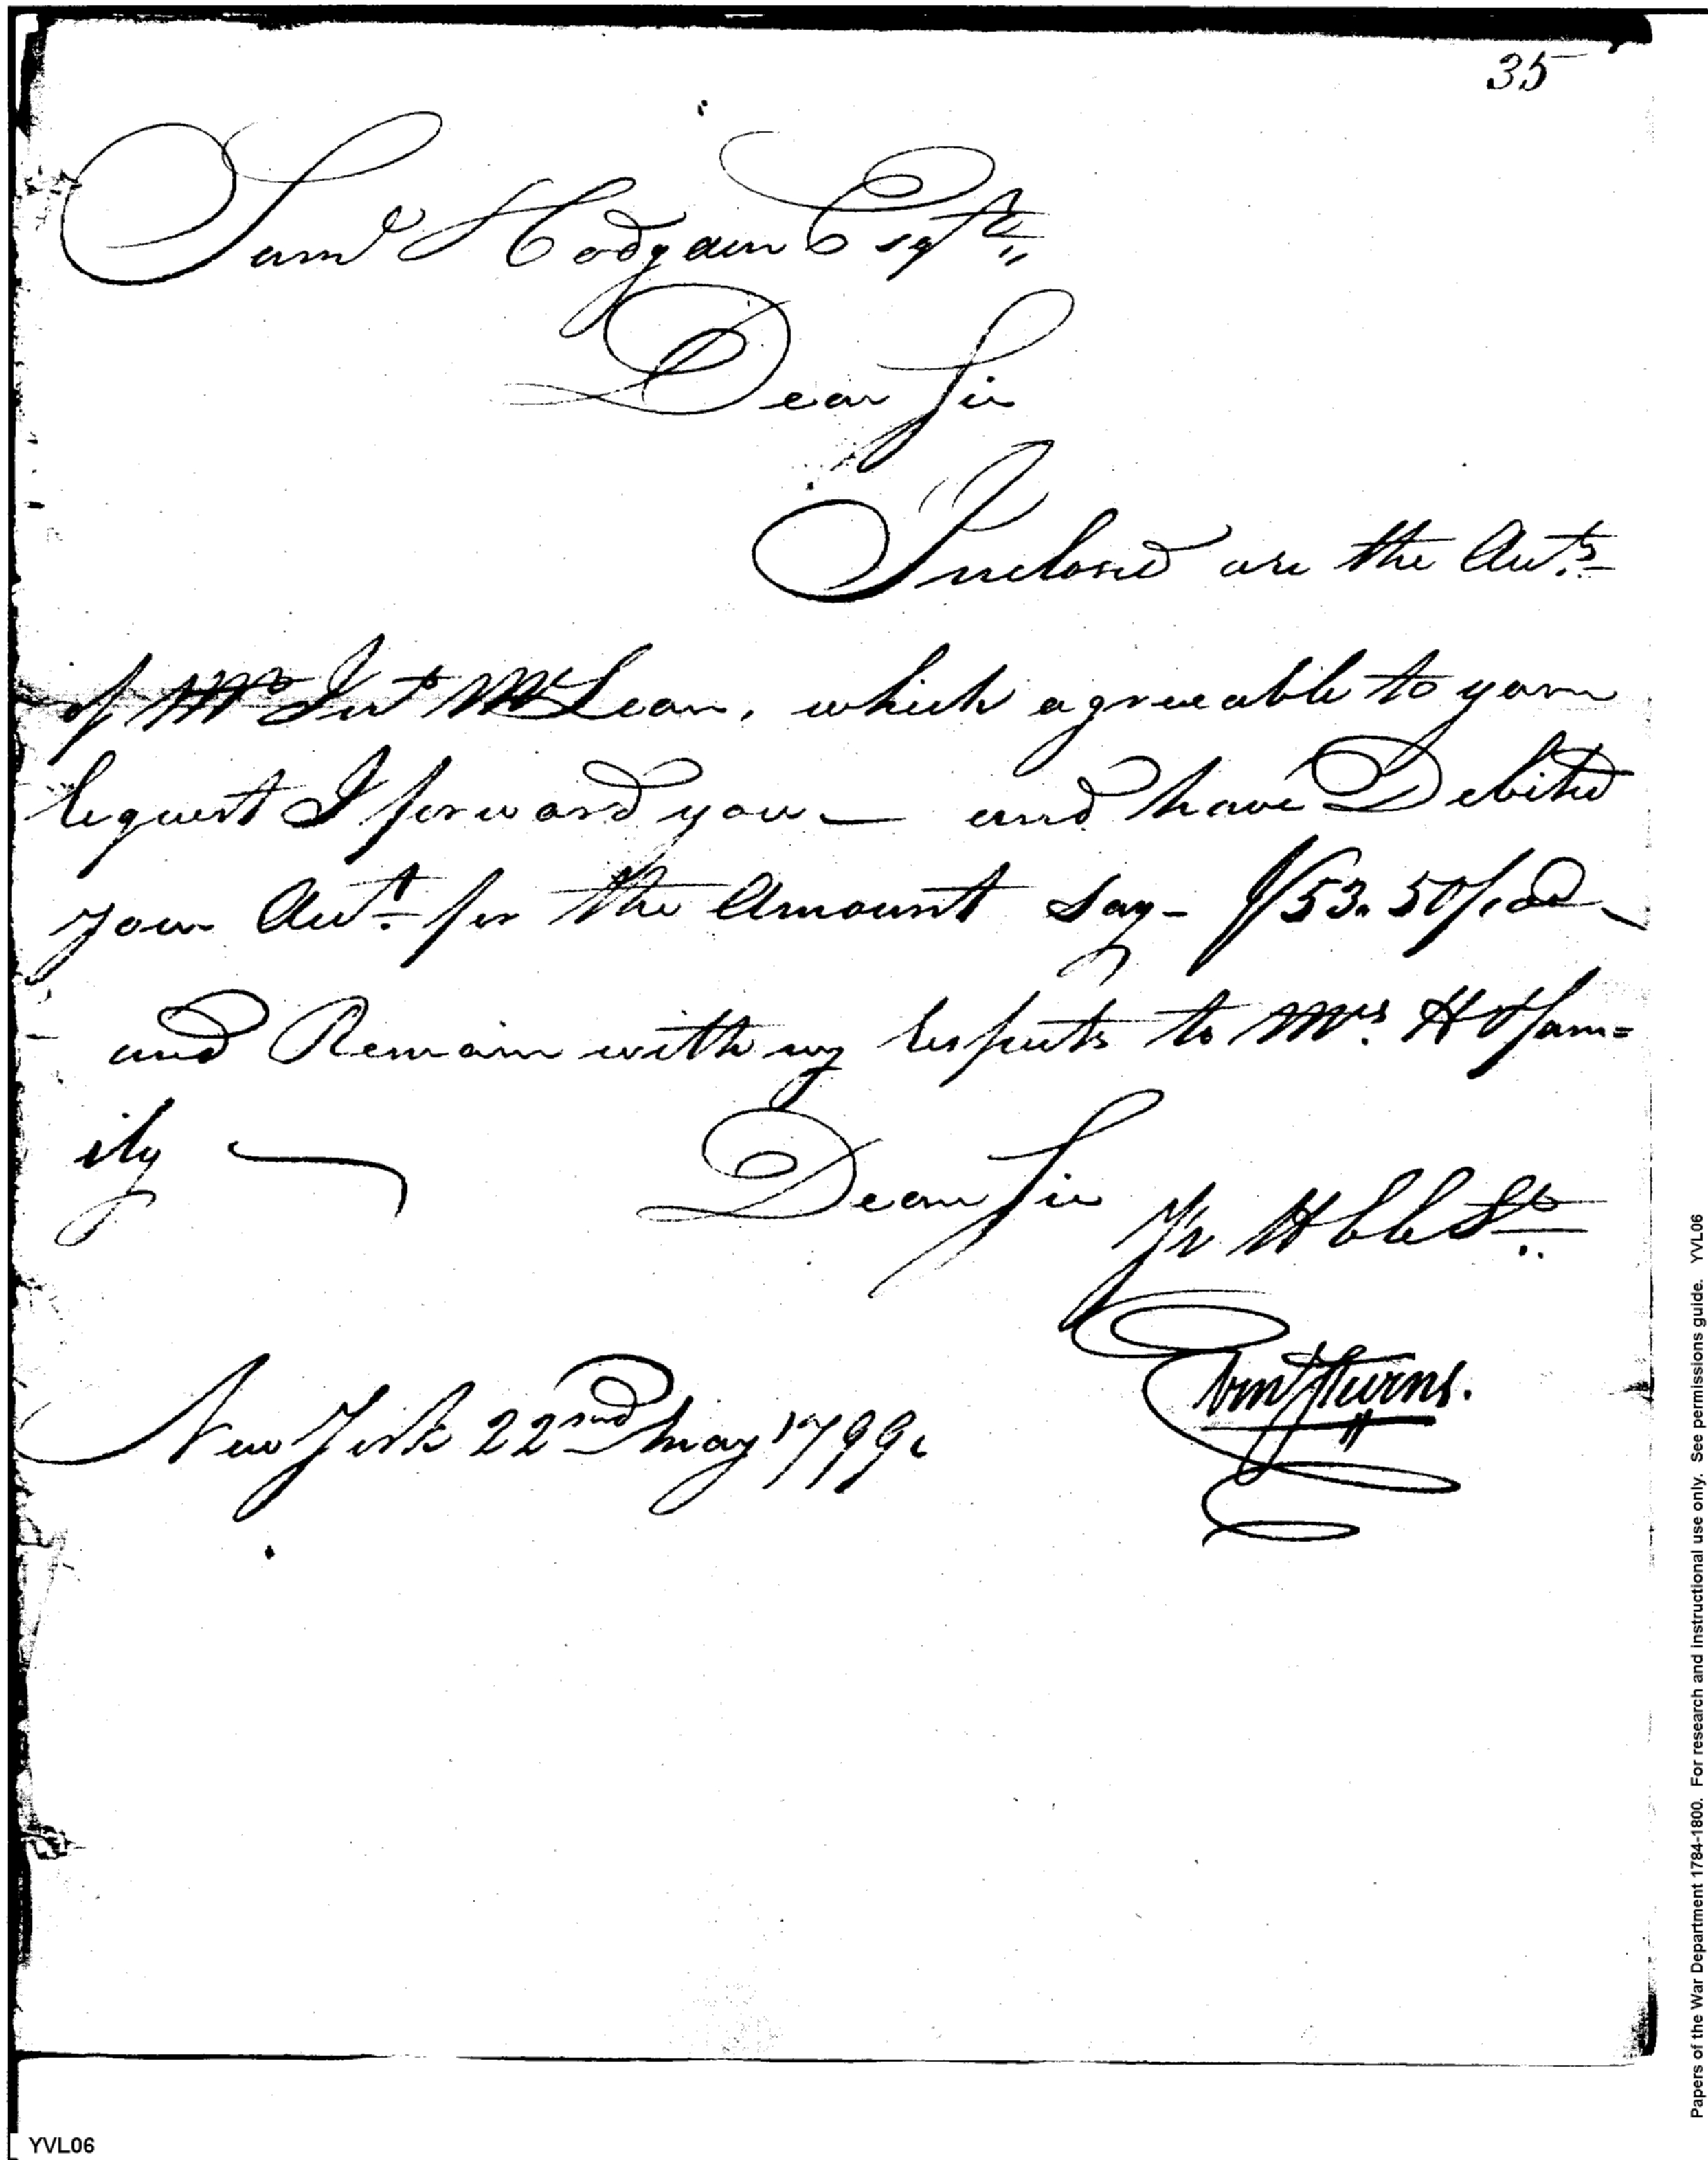 35
Saml Hodgdon Esqr
Dear Sir
Inclosed are the Acts
of Mr McLean, which agreeable to your
request I forward you — and have Debited
your Acct for the Amount Say - $53.50/100
and Remain with my respects to Mrs. H & fam=
ily
Dear Sir
Yr H
New York 22nd May 1799.
YVL06
Papers of the War Department 1784-1800. For research and instructional use only. See permissions guide. YVL06